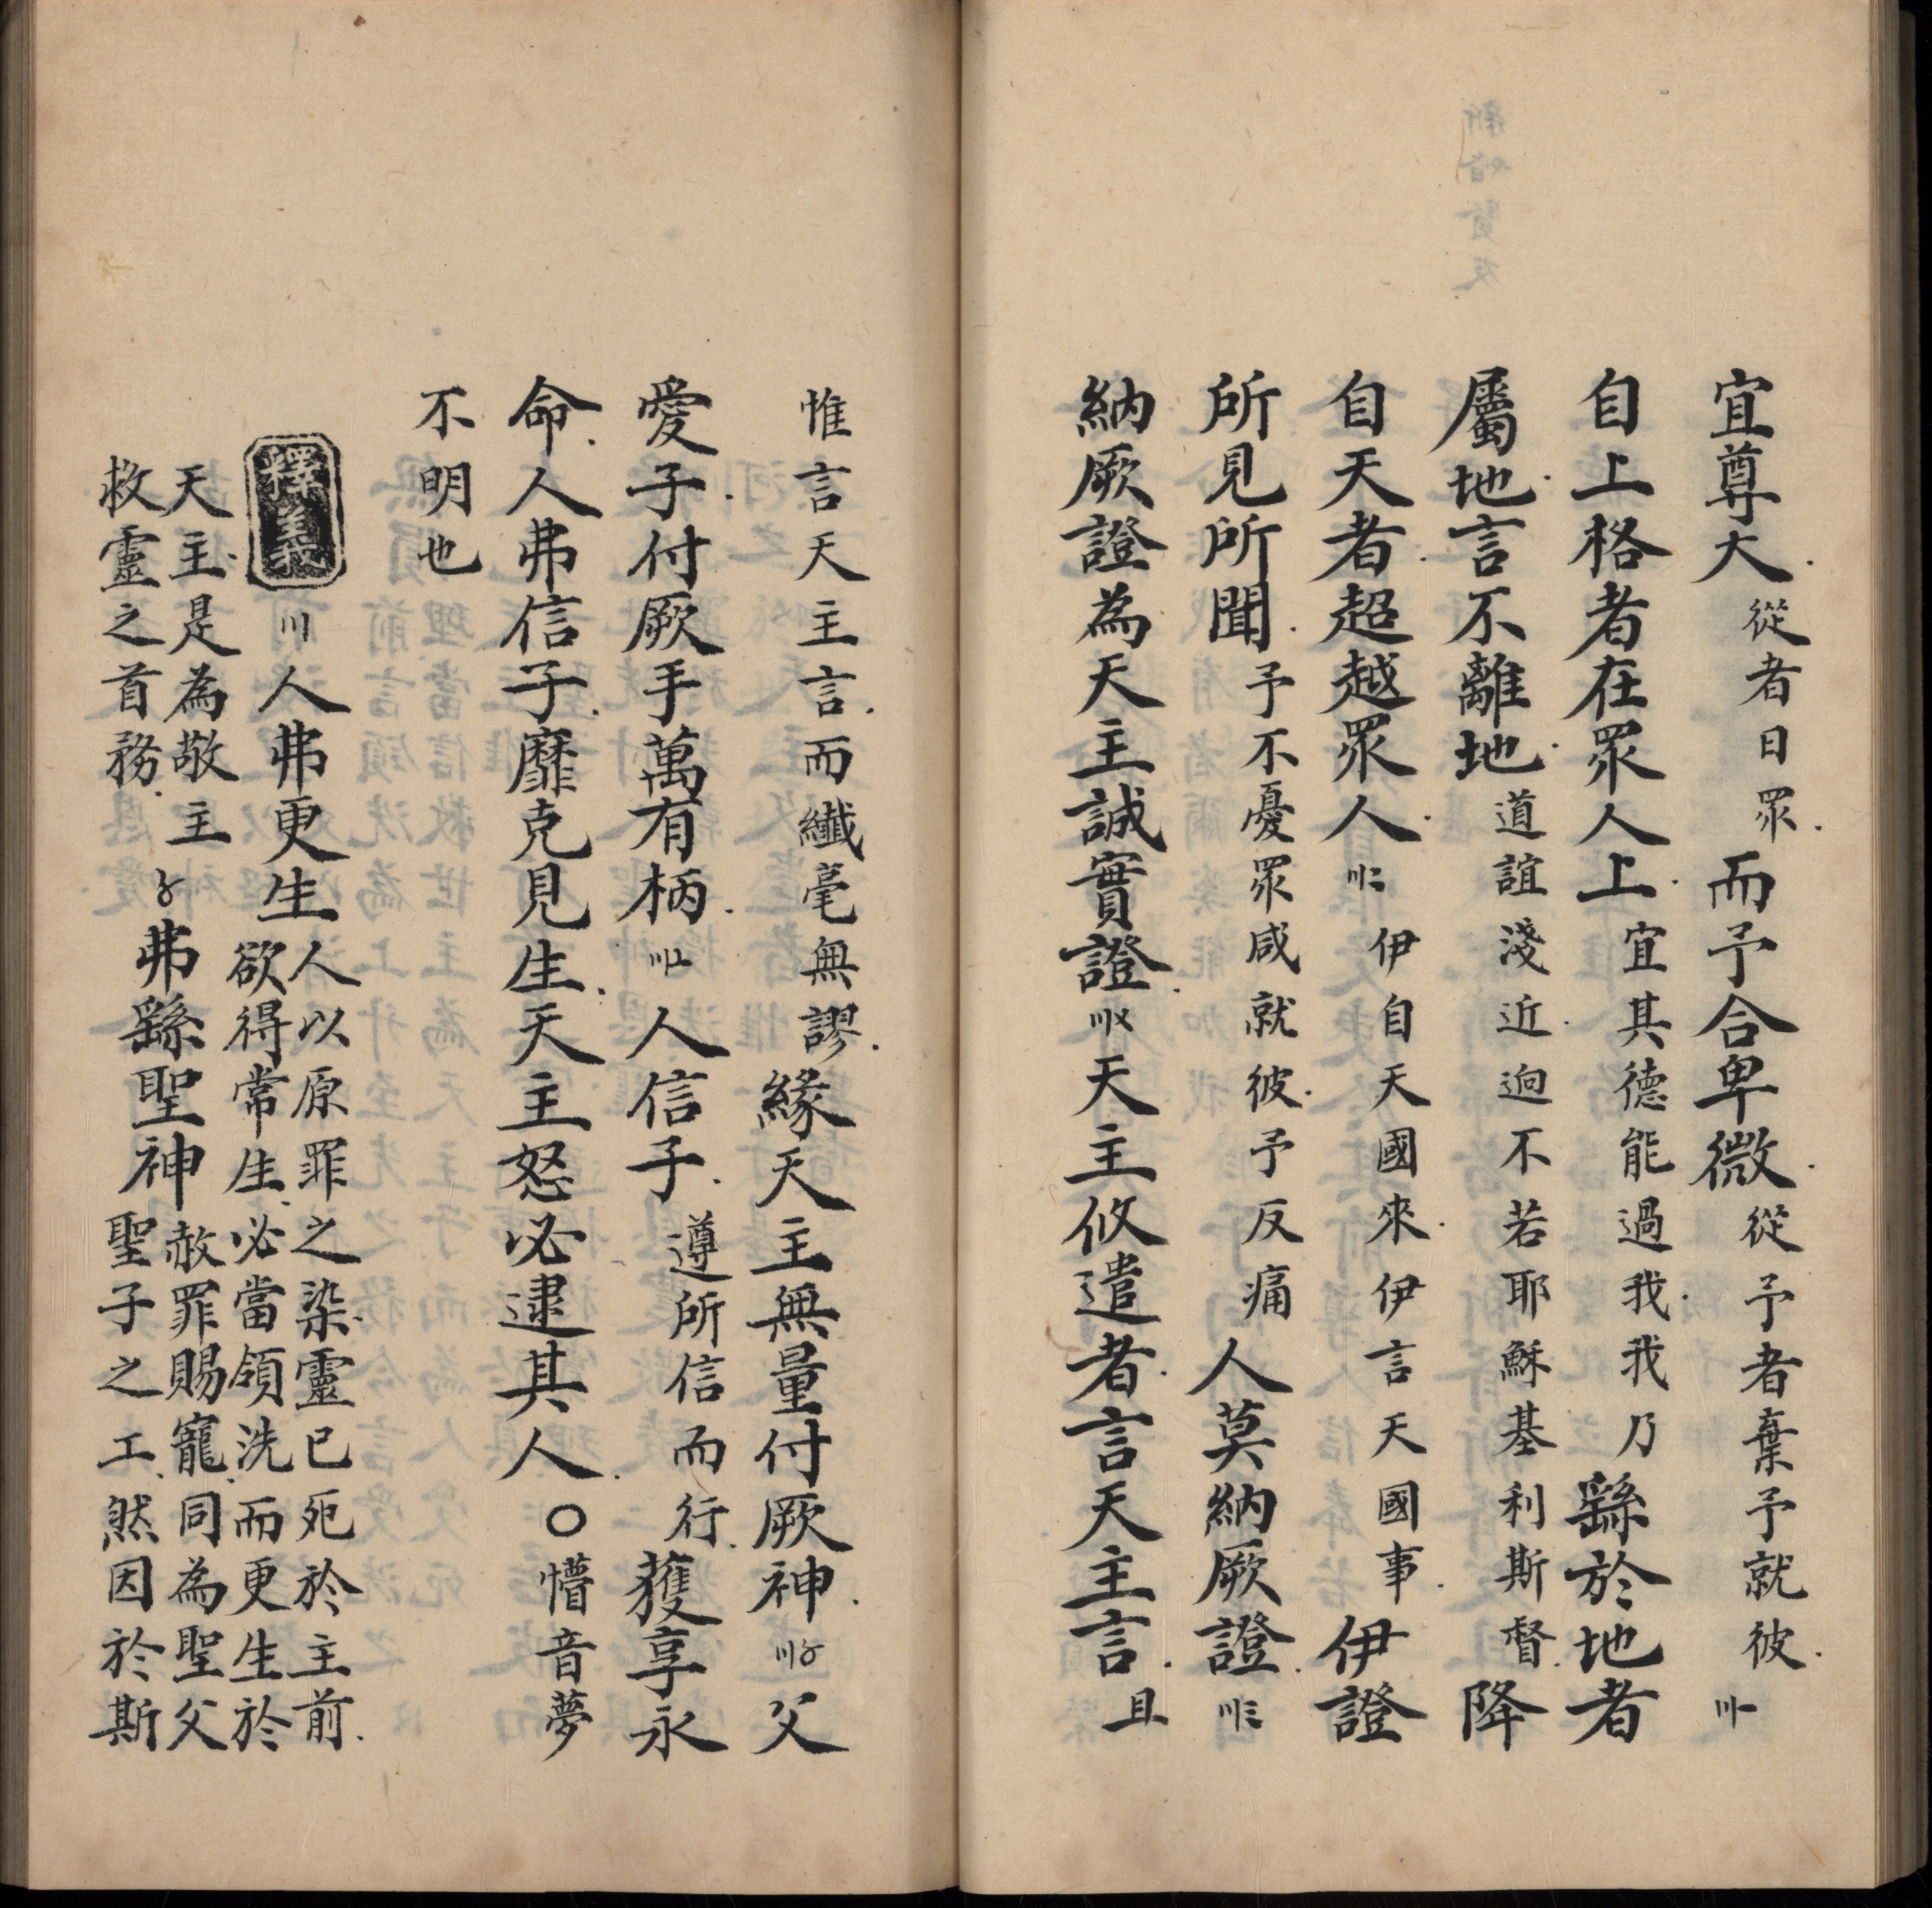 宜尊大從者日眾而予合卑微從予者棄予就彼〣〸
自上格者在眾人上宜其德能過我我乃繇於地者
屬地言不離地道誼淺近迥不若耶穌基利斯督降
自天者超越眾人〣二伊自天國來伊言天國事伊證
所見所聞予不憂眾咸就彼予反痛人莫納厥證〣三
納厥證為天主誠實證〣〤天主攸遣者言天主言且
惟言天主言而纖毫無謬緣天主無量付厥神〣〥父
愛子付厥手萬有柄〣〦人信子遵所信而行獲享永
命人弗信子靡克見生天主怒必逮其人○懵音夢
不明也
釋義〣人弗更生人以原罪之染靈已死於主前
欲得常生必當領洗而更生於
天主是為敬主〥弗繇聖神赦罪賜寵同為聖父
救靈之首務聖子之工然因於斯